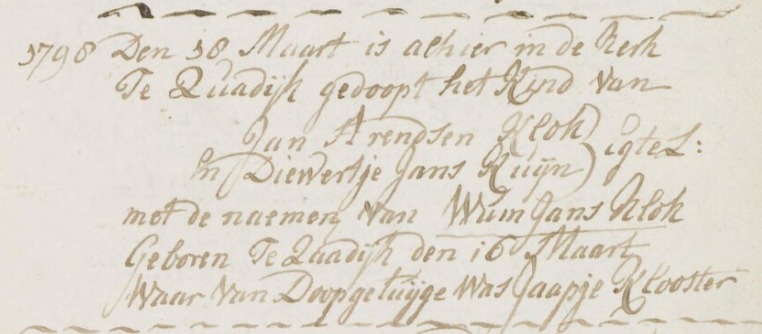 1798 Den 18 Maart is alhier in de Kerk
Te Quadijk gedoopt het Kynd van
Jan Arendsen Klok
En Diewertje Jans Kuijn } Egtel:
met de naemen van Wum Jans Klok
Geboren Te Quadijk den 16 Maart
Waar van Doopgetuijge was Jaapje Klooster